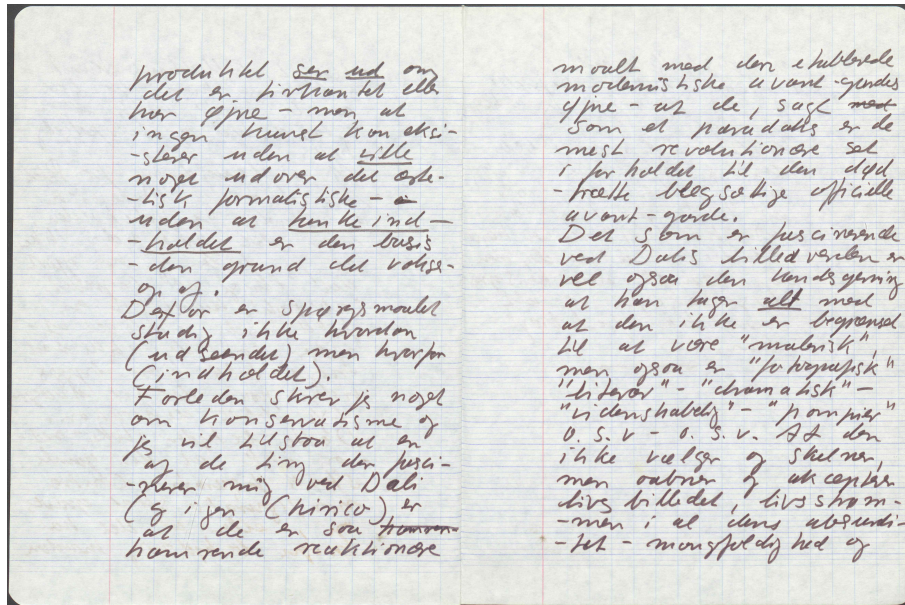 produktet ser ud om
det er firkantet eller
har øjne – men at
ingen kunst kan eksi-
-sterer uden at ville
noget udover det æste-
-tisk formalistiske –
uden at tanke ind-
-holdet er den basis
-den grund det vokse-
op af.
Derfor er spørgsmaalet
stadig ikke hvordan
(udseendet) men hvorfor
(indholdet).
Forleden skrev jeg noget
om konservatisme og
jeg vil tilstaa at en
af de ting der fasci-
-nerer mig ved Dali
(og igen Chirico) er
at de er saa
hamrende reaktionære
maalt med den etablerede
modernistiske avant-gardes
øjne – at de, sagt
som et paradoks er de
mest revolutionære set
i forholdet til den død
-trætte blegsottige officielle
avant-garde.
Det som er fascinerende
ved Dalis billedverden er
vel ogsaa den kendsgerning
at han tager alt med
at den ikke er begrænset
til at være "malerisk",
men ogsaa er "fotografisk"
"literær" – "dramatisk" –
"videnskabelig" – "pompier"
o.s.v – o.s.v. At den
ikke vælger og skelner,
men aabner og akcepterer
livsbilledet, livsstrøm-
-men i al dens absurdi-
-tet – mangfoldighed og